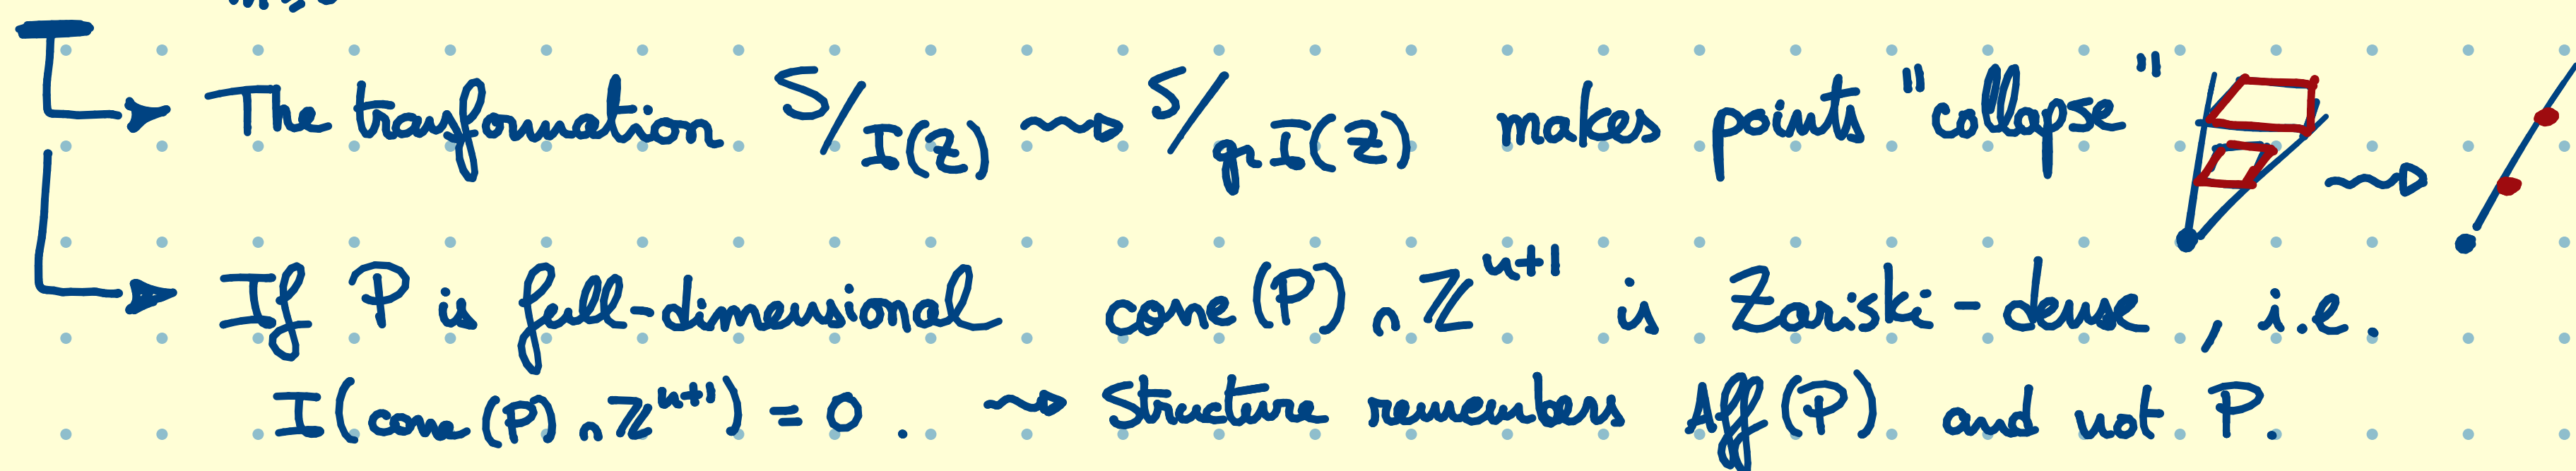 The transformation S/I(Z) ⇝ S/gr I(Z) makes points "collapse" ⇝
If P is full-dimensional cone(P) ∩ ℤ^{n+1} is Zariski-dense, i.e.
I(cone(P) ∩ ℤ^{n+1}) = 0. ⇝ Structure remembers Aff(P) and not P.